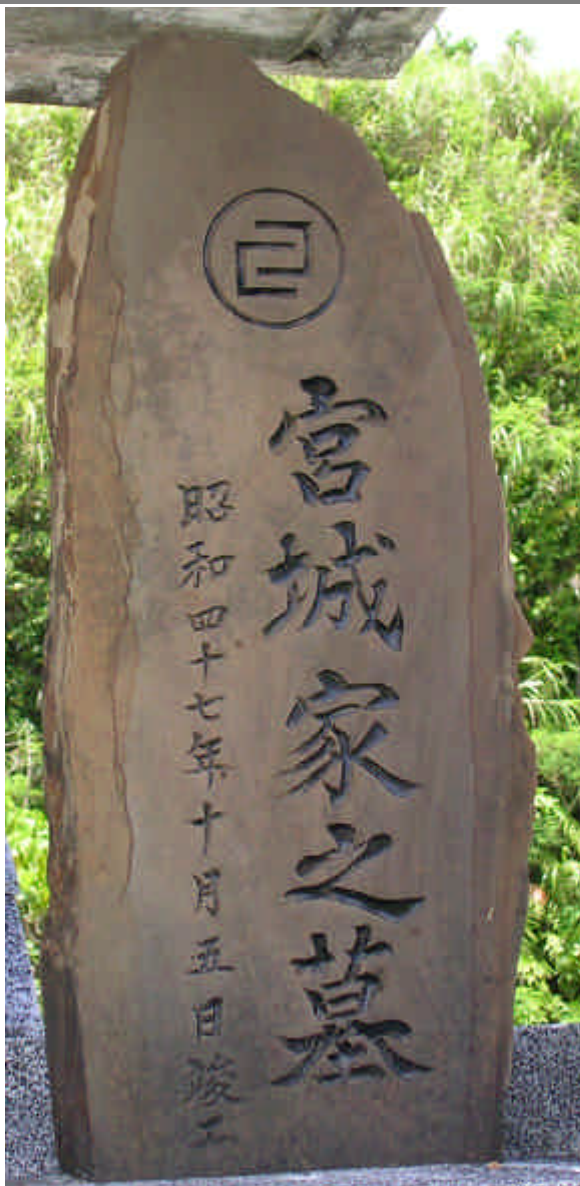 宮城家之墓
昭和四十七年十月五日竣工